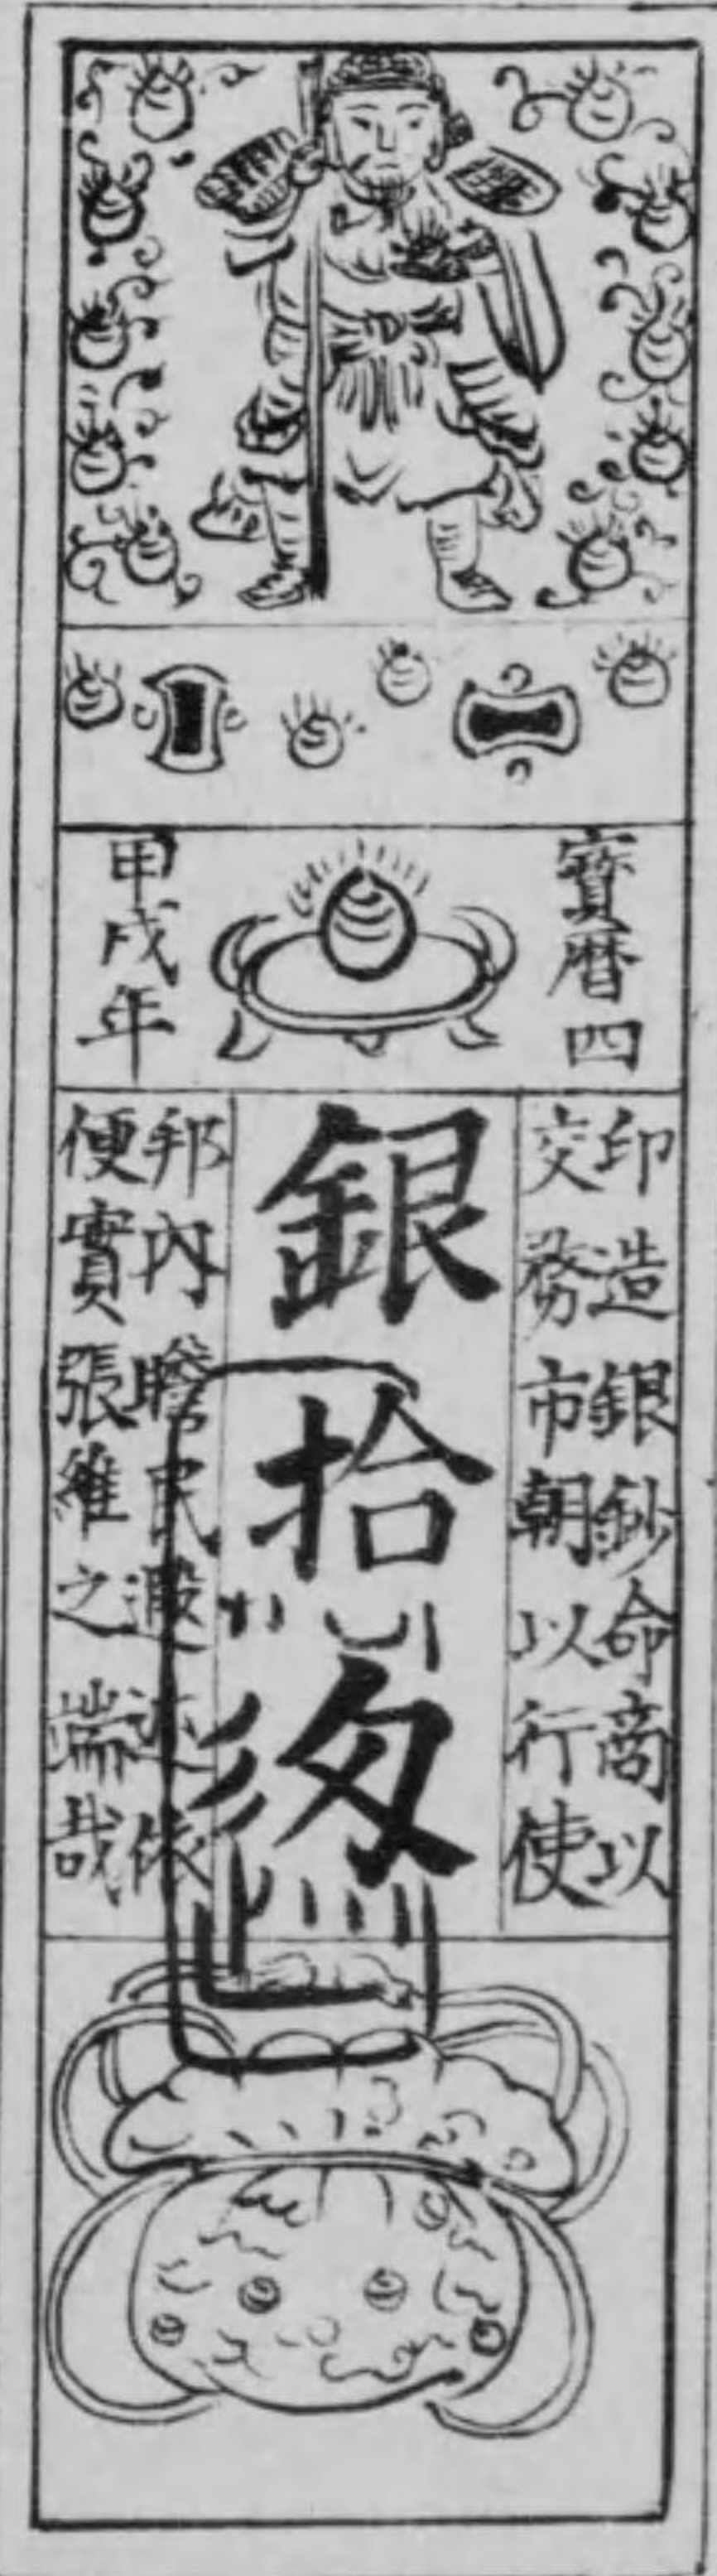 寶暦四
甲戌年
印造銀鈔命商以
交務市朝以行使
銀拾匁
邦内瞻民遐迩依
便實張維之端哉